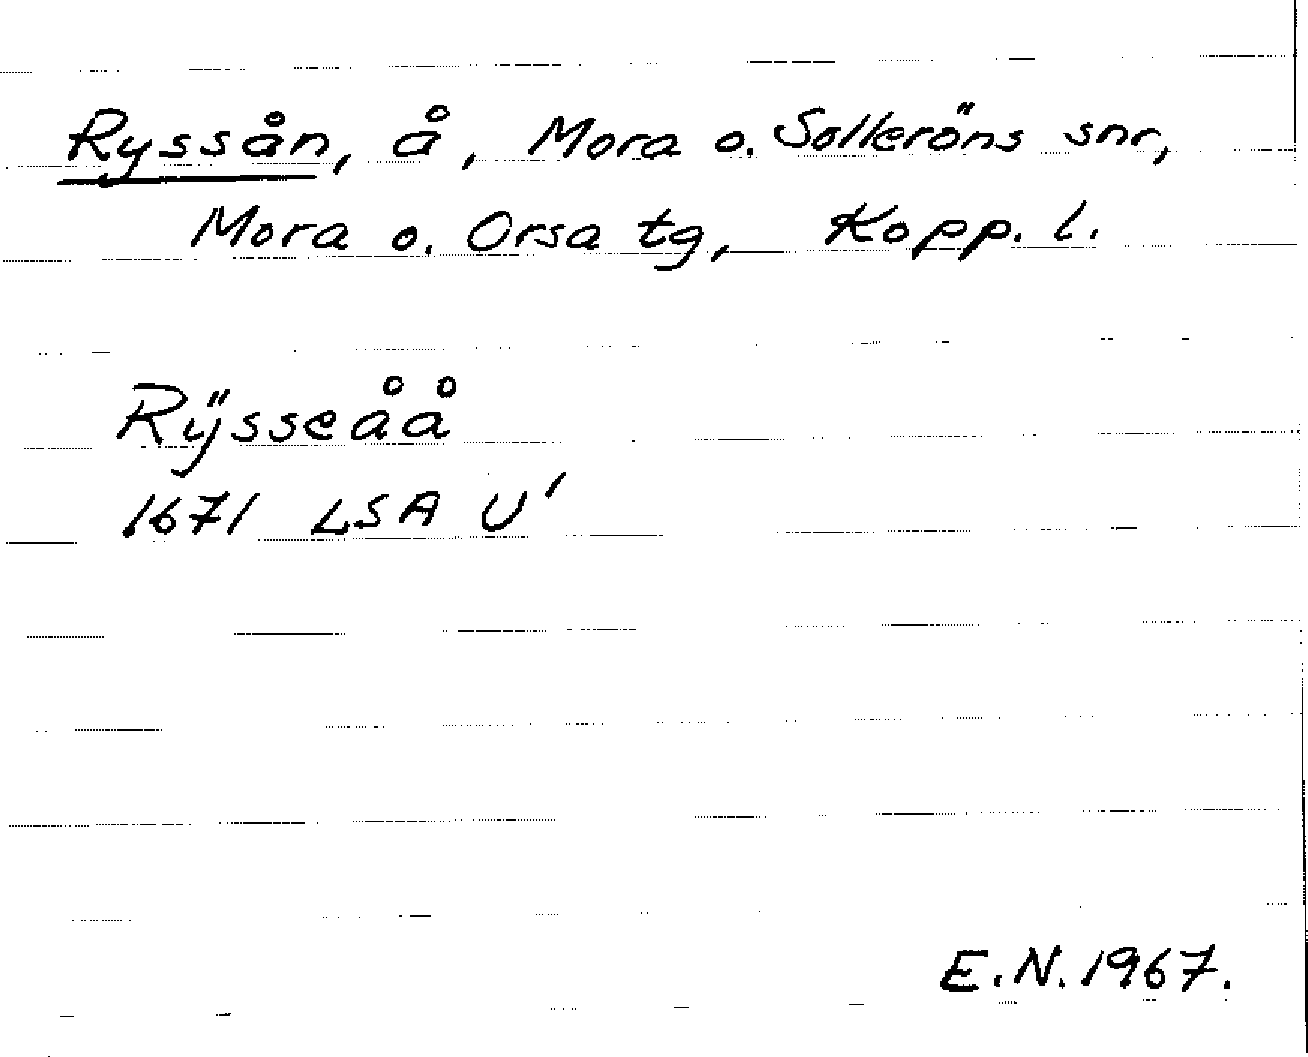 Ryssån, å, Mora o. Solleröns snr,
Mora o. Orsa tg, Kopp. l.
Rÿsseåå
1671 LSA U'
E.N. 1967.